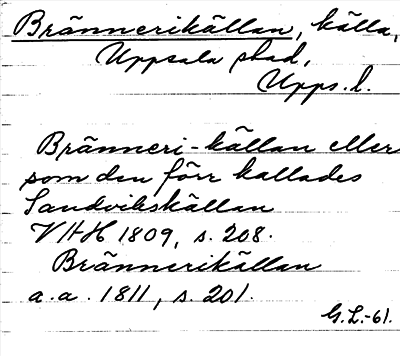 Brännerikällan, källa,
Uppsala stad,
Upps. l.
Bränneri-källan eller
som den förr kallades
Sandvikskällan
VHH 1809, s. 208.
Brännerikällan
a.a. 1811, s. 201.
G.L.-61.